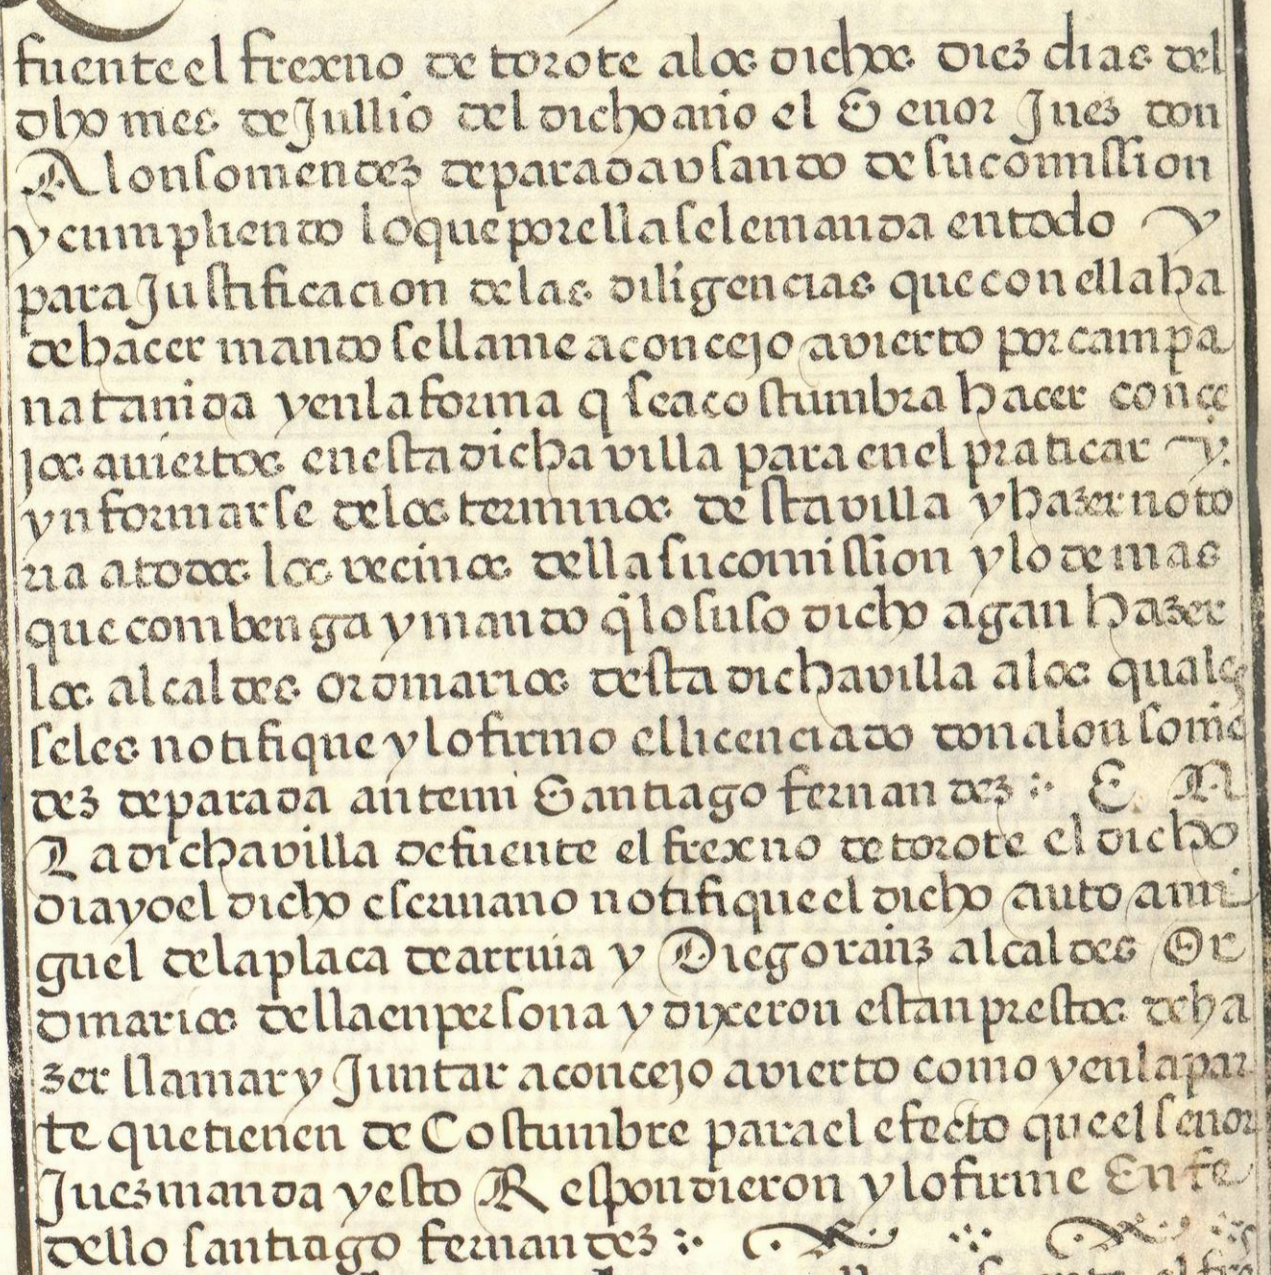 fuente el frexno de torote a los dichos diez dias del
dho mes de Jullio del dicho año el Señor Juez don
Alonso mendez de parada usando de su comission
y cumpliendo lo que por ella se le manda en todo y
para Justificacion de las diligencias que con ella ha
de hacer mando se llame a concejo avierto por campa
na tanida y en la forma q se acostumbra hacer conçe
jos aviertos en esta dicha villa para en el praticar y
ynformarse de los terminos desta villa y hazer noto
ria a todos los vecinos della su comission y lo demas
que combenga y mando q lo suso dicho agan hazer
los alcaldes ordinarios desta dicha villa a los quales
se les notifique y lo firmo el licenciado don alonso mē
dez de parada ante mi Santiago fernandez E N
La dicha villa de fuente el frexno de torote el dicho
dia yo el dicho escrivano notifique el dicho auto a mi
guel de la placa de arruia y Diego ranz alcaldes Or
dinarios della en persona y dixeron estan prestos de ha
zer llamar y Juntar a concejo avierto como y en la par
te que tienen de Costumbre para el efecto que el señor
Juez manda y esto Respondieron y lo firme En fe
dello santiago fernandez